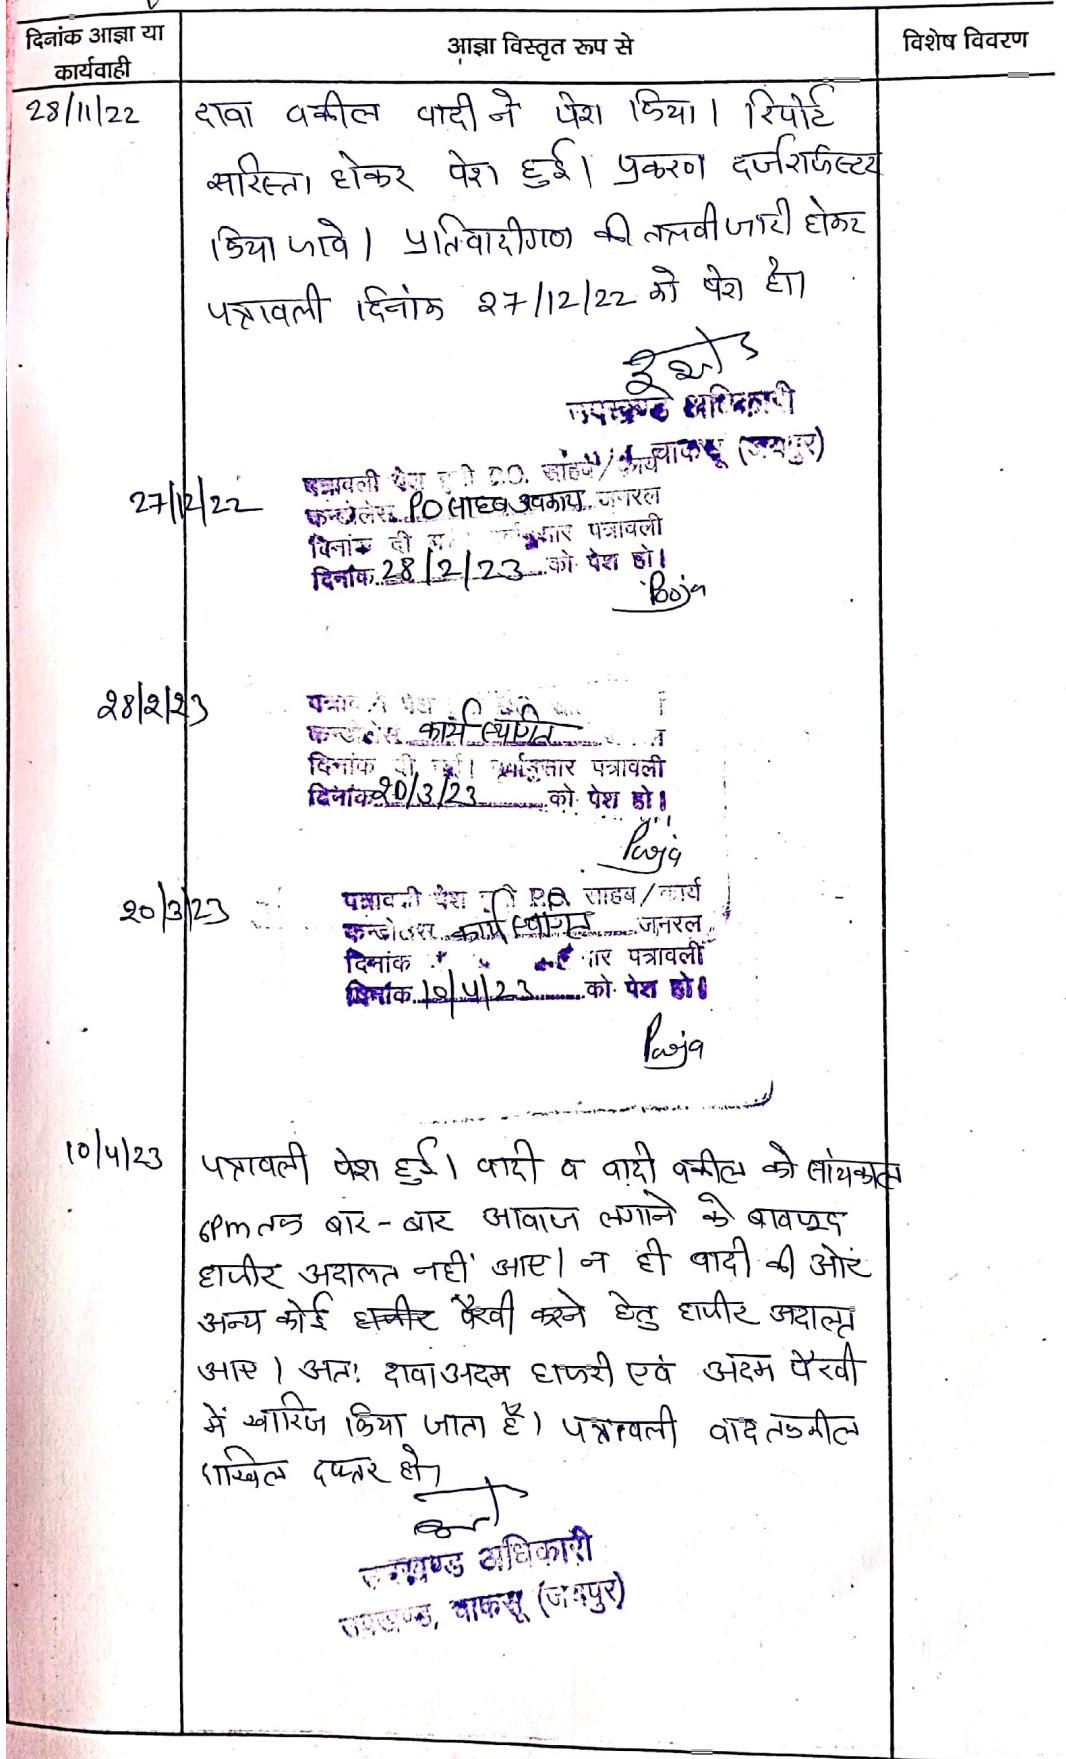 दिनांक आज्ञा या
कार्यवाही
आज्ञा विस्तृत रूप से
विशेष विवरण
28/11/22
दावा वकील वादी ने पेश किया। रिपोर्ट
सरिस्ता होकर पेश हुई। प्रकरण दर्ज रजिस्टर
किया जावे। प्रतिवादीगण की तलवी जारी होकर
पत्रावली दिनांक 27/12/22 को पेश हो।
उपखण्ड अधिकारी
चाकसू (जयपुर)
27/12/22
पत्रावली पेश P.O. साहब/कार्य
कन्डोलेंस PO साहब अवकाश जनरल
दिनांक दी पत्रावली
दिनांक 28/2/23 को पेश हो।
Pooja
28/2/23
पेश
कार्य स्थगित
दिनांक दी पत्रावली
दिनांक 20/3/23 को पेश हो।
Pooja
20/3/23
पत्रावली पेश P.O. साहब/कार्य
कन्डोलेंस कार्य स्थगित जनरल
दिनांक पत्रावली
दिनांक 10/4/23 को पेश हो।
Pooja
10/4/23
पत्रावली पेश हुई। वादी व वादी वकील को सांयकाल
6Pm तक बार-बार आवाज लगाने के बावजूद
हाजीर अदालत नहीं आए। न ही वादी की ओर
अन्य कोई हाजीर पैरवी करने हेतु हाजीर अदालत
आए। अतः दावा अदम हाजरी एवं अदम पैरवी
में खारिज किया जाता है। पत्रावली वाद तकमील
दाखिल दफ्तर हो।
उपखण्ड अधिकारी
उपखण्ड, चाकसू (जयपुर)